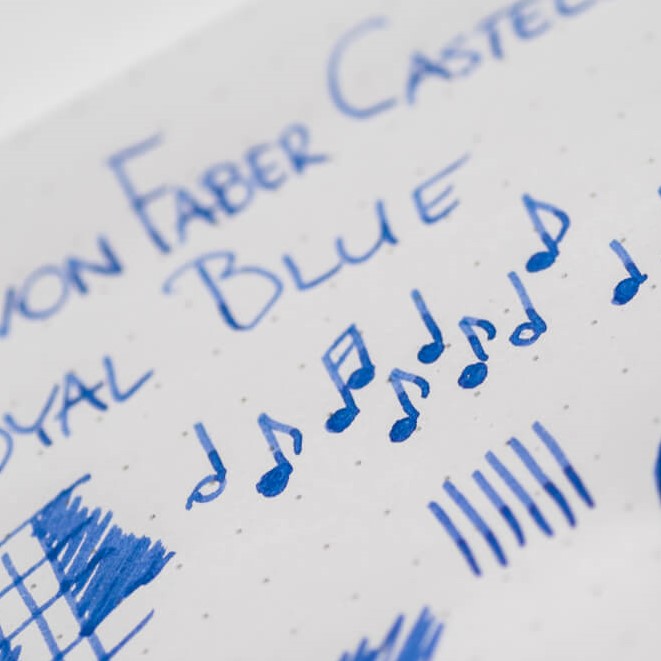 VON FABER CASTEL
OYAL BLUE